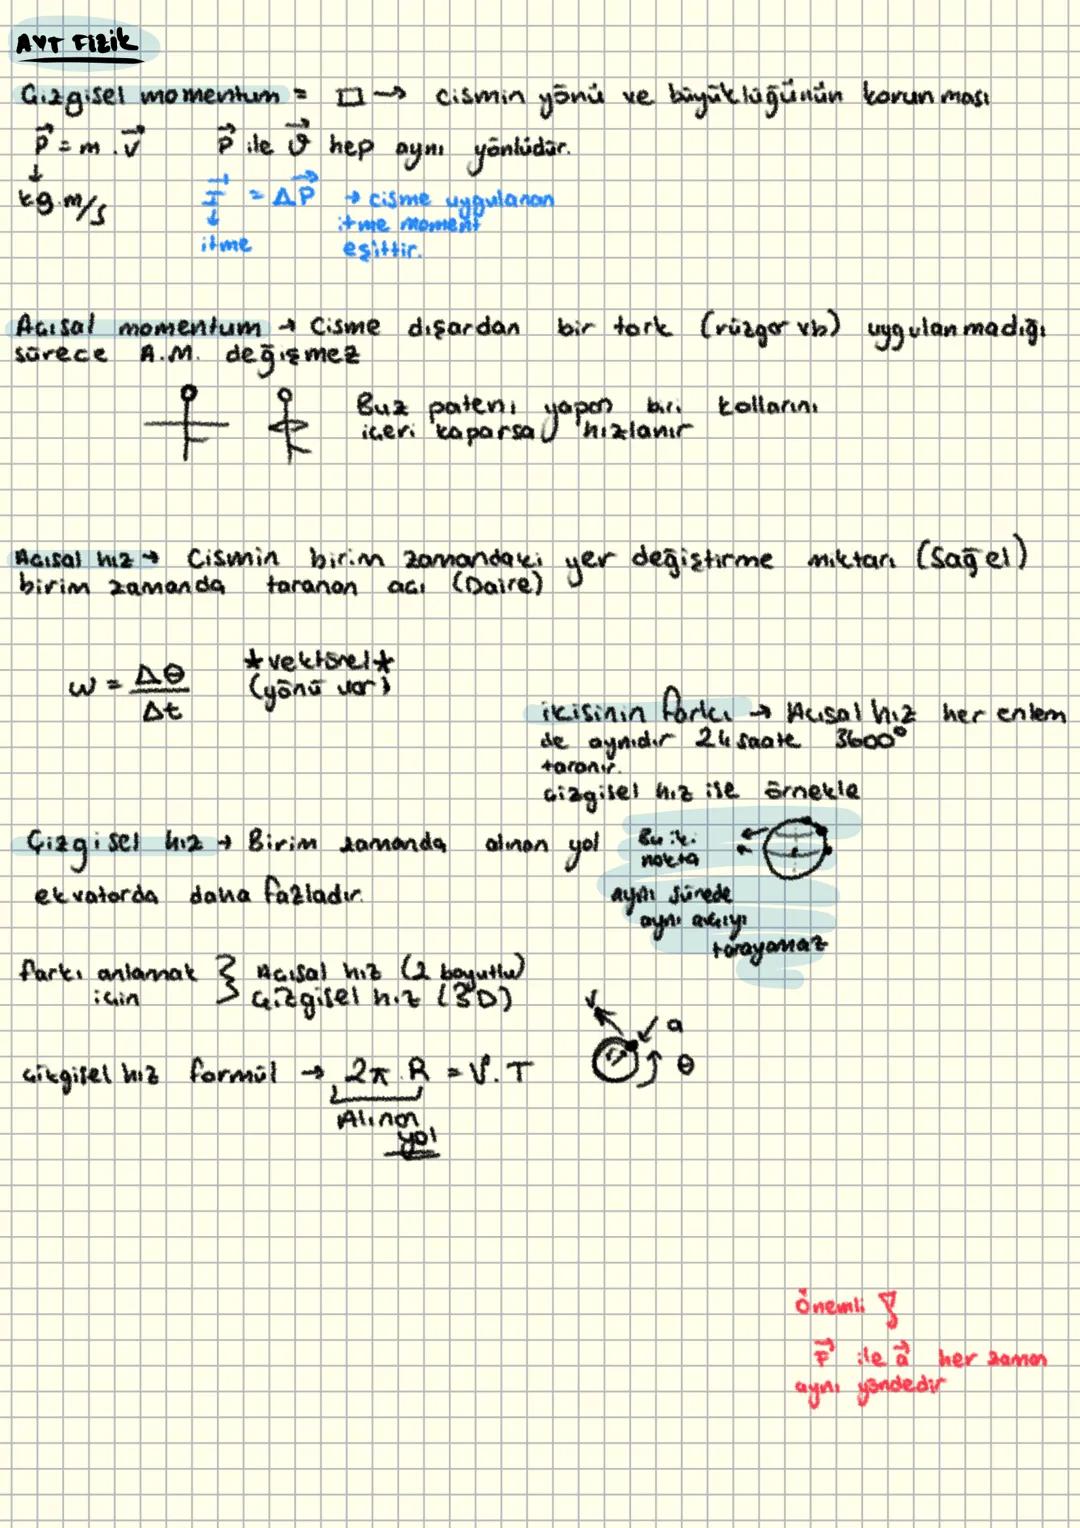 AYT Fizik
Çizgisel momentum = □→ cismin yönü ve büyüklüğünün korunması
P = m . V   P ile ϑ hep aynı yönlüdür.
↓
kg.m/s
I = ΔP → cisme uygulanan
↓ itme moment
itme eşittir.
Açısal momentum → Cisme dışardan bir tork (rüzgar vb) uygulanmadığı
sürece A.M. değişmez
Buz pateni yapan biri kollarını
içeri kaparsa hızlanır
Açısal hız → Cismin birim zamandaki yer değiştirme miktarı (Sağ el)
birim zamanda taranan açı (Daire)
ω = Δθ / Δt
*vektörel*
(yönü var)
ikisinin farkı → Açısal hız her enlem
de aynıdır 24 saate 3600°
taranır.
çizgisel hız ise örnekle
Çizgisel hız → Birim zamanda alınan yol
ekvatorda daha fazladır.
Bu iki
nokta
aynı sürede
aynı açıyı
tarayamaz
farkı anlamak } Açısal hız (2 boyutlu)
için } çizgisel hız (3D)
V
a
θ
çizgisel hız formül → 2π.R = V.T
Alınan
yol
Önemli !
F ile a her zaman
aynı yöndedir